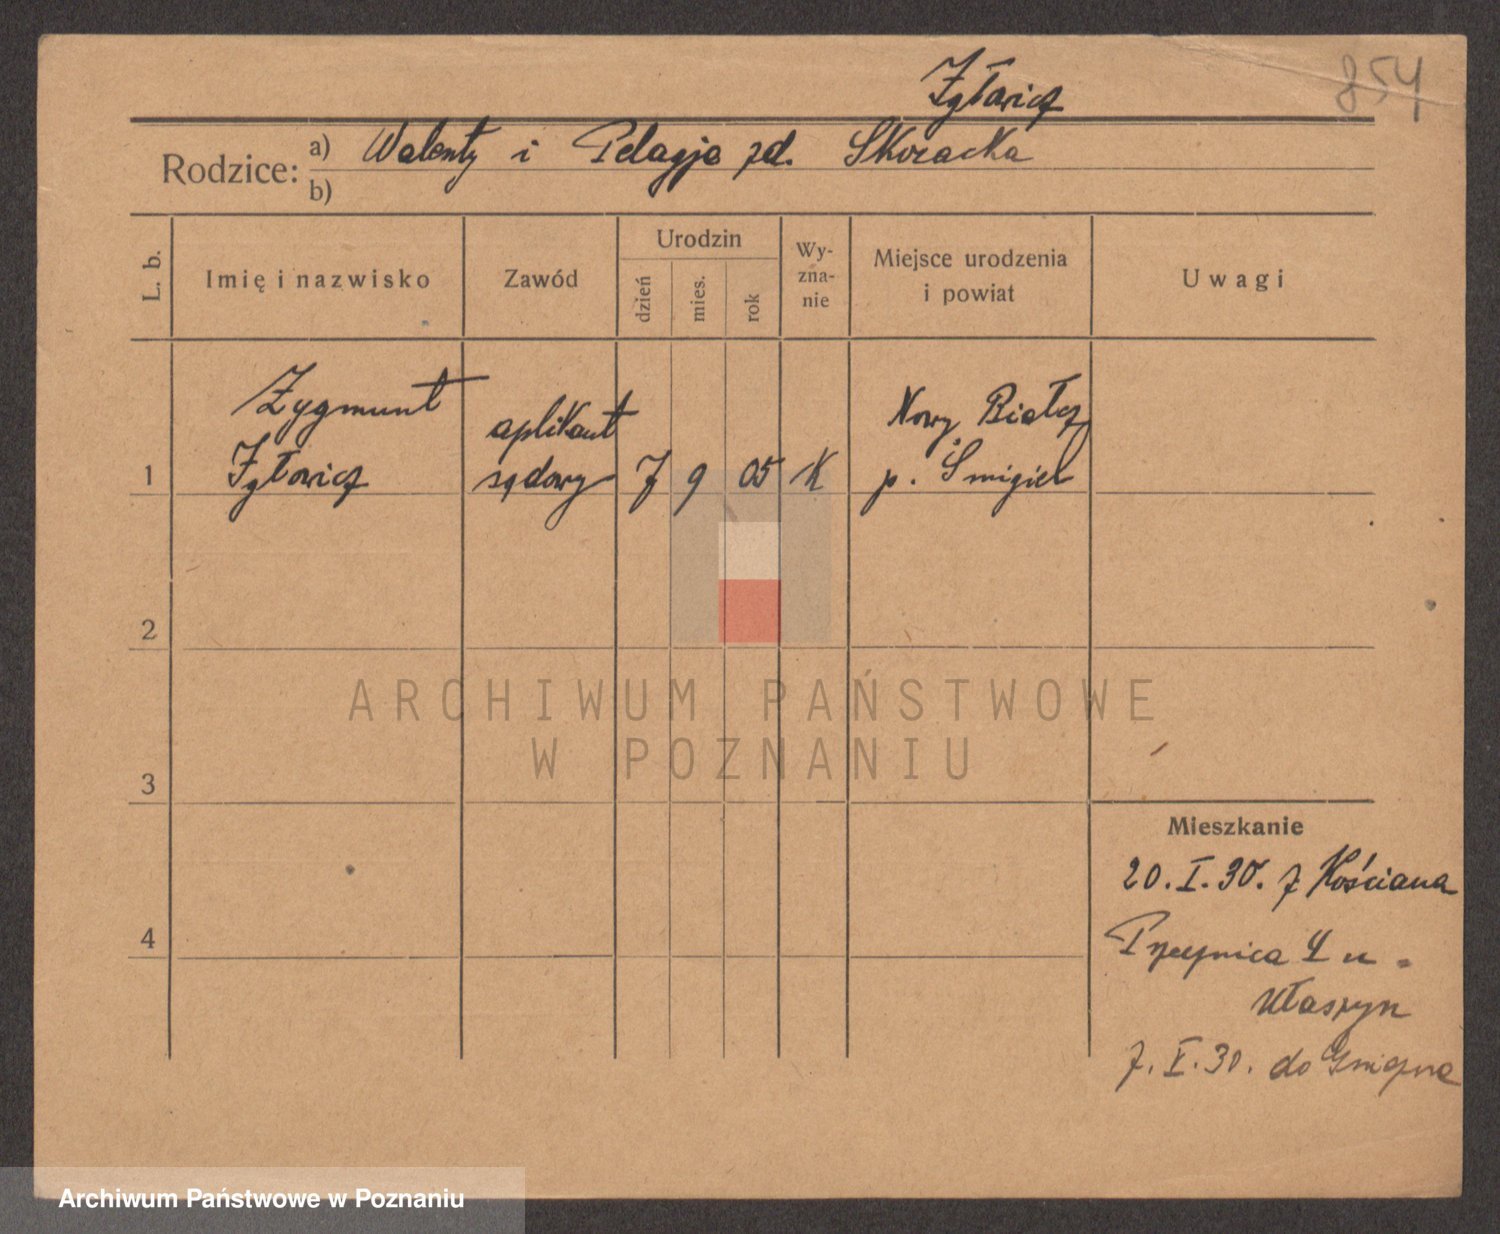 854
Rodzice: a) Walenty i Pelagja zd. Skoracka
b)
L. b.
Imię i nazwisko
Zawód
Urodzin
dzień
mies.
rok
Wy-
zna-
nie
Miejsce urodzenia
i powiat
Uwagi
Zygmunt
aplikant
Nowy Białcz
1
sądowy
7
9
05
K
p. Śmigiel
2
3
4
ARCHIWUM PAŃSTWOWE
W POZNANIU
Mieszkanie
20.I.30. z Kościana
4 u
7.V.30. do
Archiwum Państwowe w Poznaniu